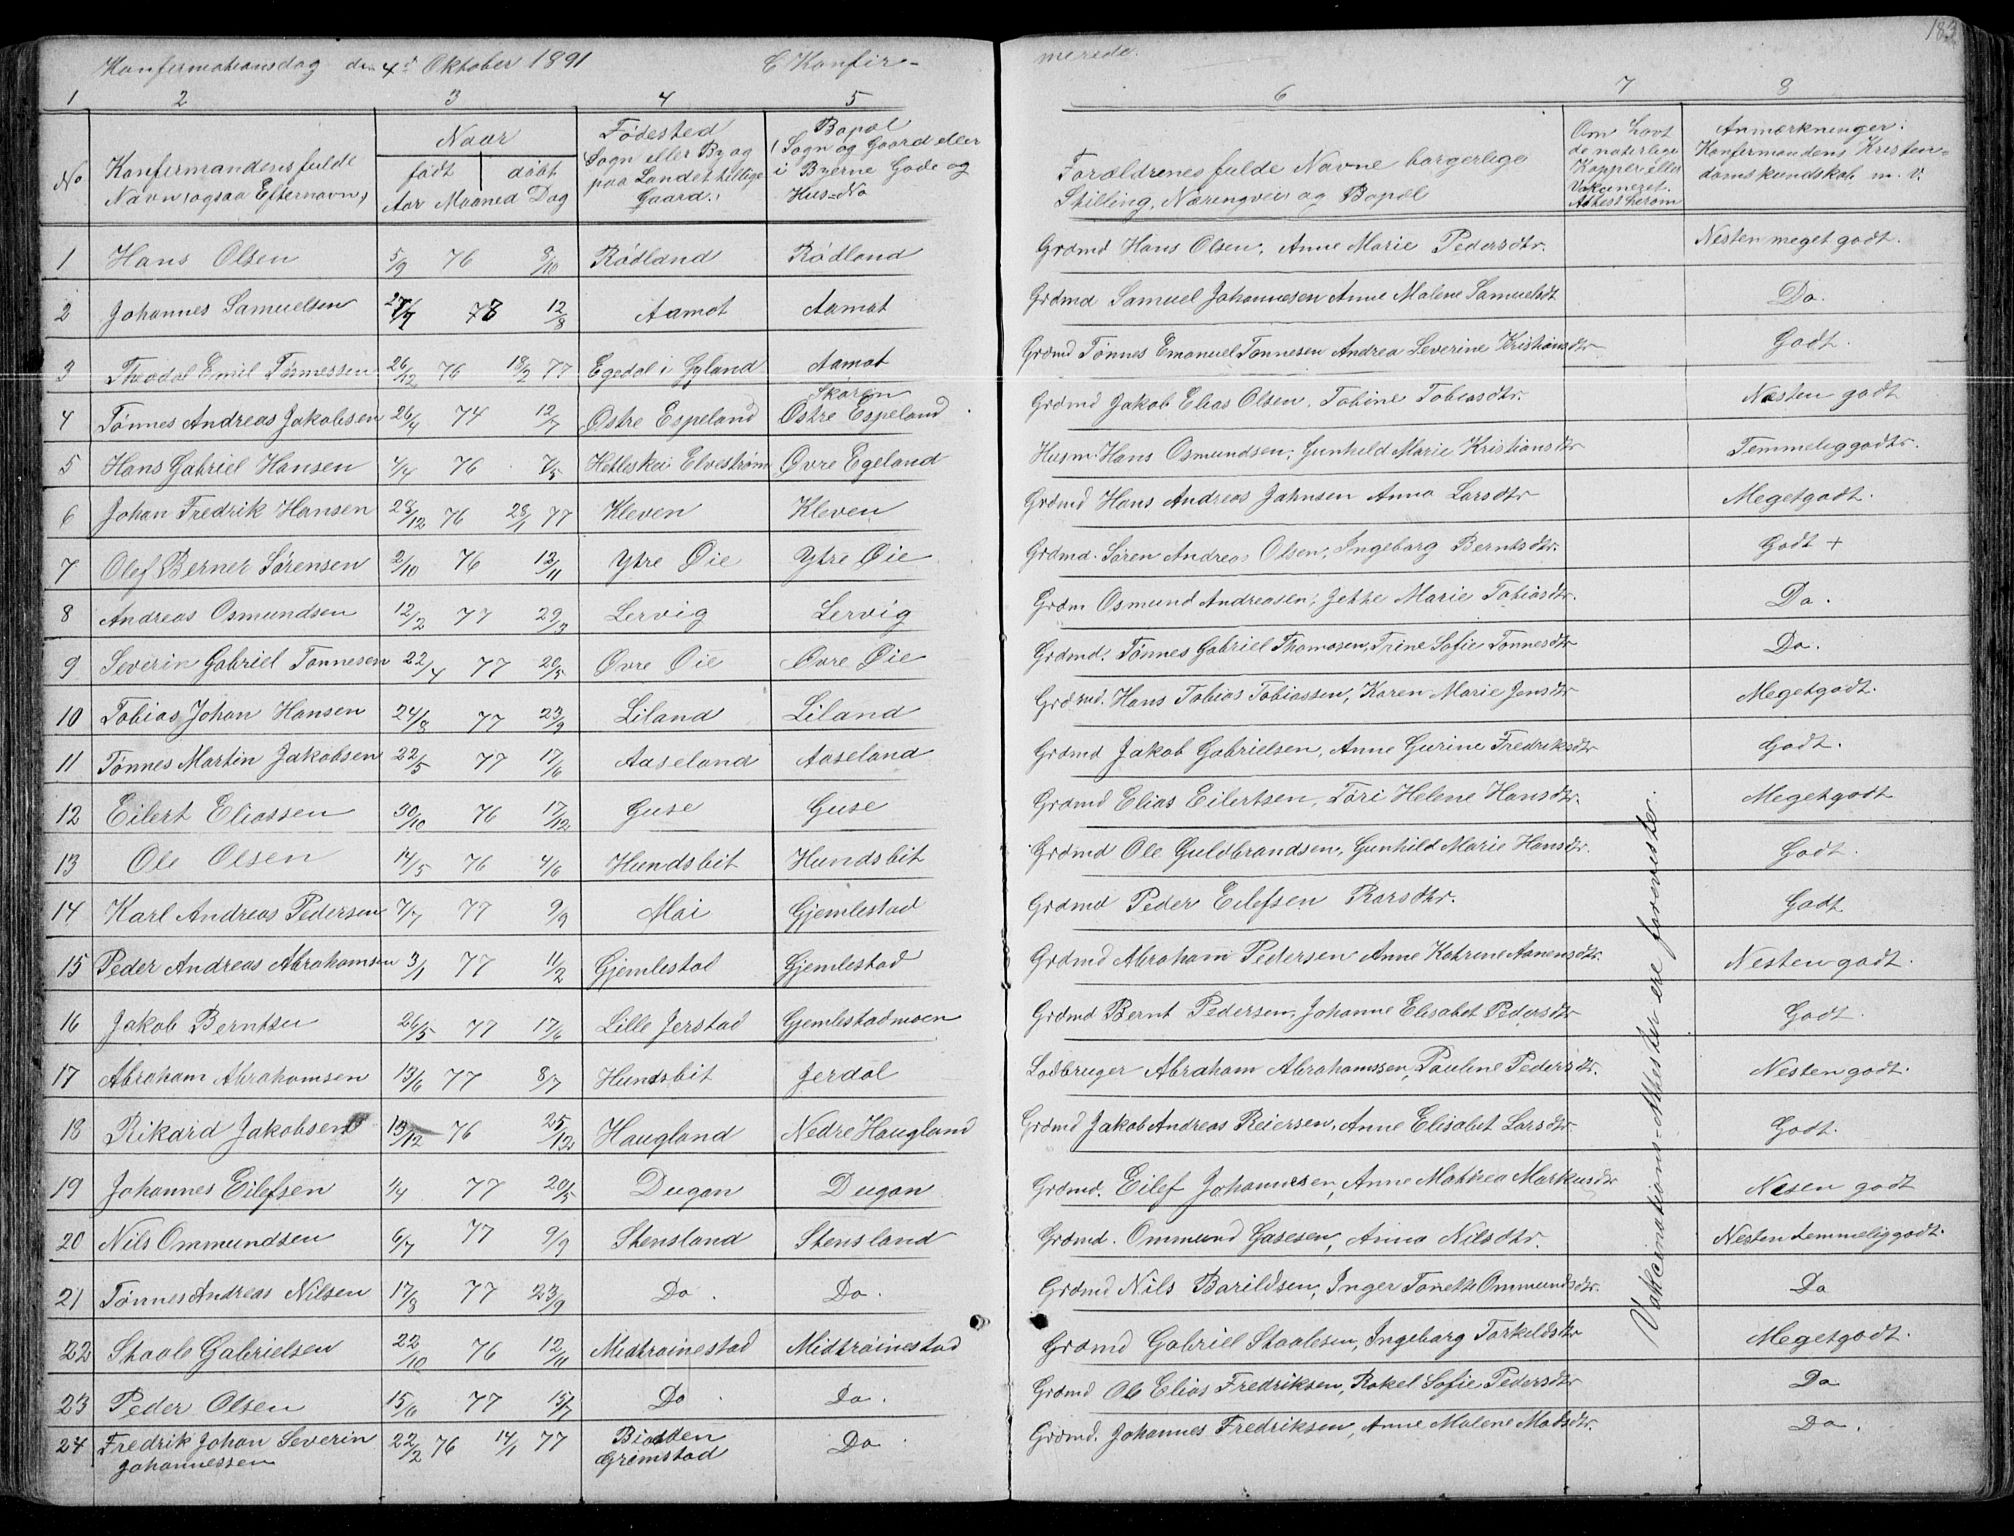 183
Konfirmationsdag den 4de Oktober 1891 C Konfir- merede.
1 2 3 4 5 6 7 8
No Konfirmandens fulde Navn, ogsaa Efternavn, Naar født døbt Aar Maaned Dag Fødested (Sogn eller By og paa Landet tillige Gaard.) Bopæl (Sogn og Gaard eller i Byerne Gade og Hus-No Forældrenes fulde Navne borgerlige Stilling, Næringsvei og Bopæl Om havt de naturlige Kopper eller Vakcineret. Attest herom Anmærkninger. Konfirmandens Kristendomskundskab m. v.
1 Hans Olsen 5/9 76 8/10 Rødland Rødland Grdmd Hans Olsen, Anne Marie Pedersdtr. Nesten meget godt.
2 Johannes Samuelsen 27/7 78 12/8 Aamot Aamot Grdmd Samuel Johannesen Anne Malene Samuelsdt Do.
3 Theodal Emil Tønnessen 26/12 76 18/2 77 Egedal i Gyland Aamot Grdmd Tønnes Emanuel Tønnesen Andrea Severine Kristiansdtr Godt.
4 Tønnes Andreas Jakobsen 26/4 74 12/7 Østre Espeland Skaren Østre Espeland Grdmd Jakob Elias Olsen, Tobine Tobiasdtr. Nesten godt
5 Hans Gabriel Hansen 4/4 76 7/5 Hetleskei Elvestrøm Øvre Egeland Husm. Hans Osmundsen, Gunhild Marie Kristiansdtr Temmelig godt.
6 Johan Fredrik Hansen 28/12 76 28/1 77 Kleven Kleven Grdmd Hans Andreas Jahnsen Anna Larsdtr Meget godt.
7 Olef Berner Sørensen 2/10 76 12/11 Ytre Øie Ytre Øie Grdmd. Søren Andreas Olsen, Ingeborg Berntsdtr. Godt +
8 Andreas Osmundsen 12/2 77 29/3 Lervig Lervig Grdm Osmund Andreasen, Jette Marie Tobiasdtr. Do.
9 Severin Gabriel Tønnesen 22/4 77 20/5 Øvre Øie Øvre Øie Grdmd. Tønnes Gabriel Thomasen, Trine Sofie Tønnesdtr Do.
10 Tobias Johan Hansen 24/8 77 23/9 Liland Liland Grdmd. Hans Tobias Tobiassen, Karen Marie Jensdtr Meget godt.
11 Tønnes Martin Jakobsen 22/5 77 17/6 Aaseland Aaseland Grdmd Jakob Gabrielsen, Anne Gurine Fredriksdtr Godt.
12 Eilert Eliassen 30/10 76 17/12 Guse Guse Grdmd Elias Eilertsen, Tøri Helene Hansdtr. Meget godt
13 Ole Olsen 14/5 76 4/6 Hundsbit Hundsbit Grdmd Ole Guldbrandsen, Gunhild Marie Hansdtr. Godt.
14 Karl Andreas Pedersen 7/7 77 9/9 Moi Gjemlestad Grdmd Peder Eilefsen Rarsdtr. Godt
15 Peder Andreas Abrahamsen 3/1 77 11/2 Gjemlestal Gjemlestad Grdmd Abraham Pedersen Anne Katrine Aanensdtr. Nesten godt.
16 Jakob Berntsen 26/5 77 17/6 Lille Jerstad Gjemlestadmoen Grdmd Bernt Pedersen, Johanne Elisabet Pedersdtr Godt.
17 Abraham Abrahamsen 13/6 77 8/7 Hundsbit Jerdal Lodbruger Abraham Abrahamssen, Pauline Pedersdtr. Nesten godt.
18 Rikard Jakobsen 13/12 76 25/12 Haugland Nedre Haugland Grdmd Jakob Andreas Reiersen, Anne Elisabet Larsdtr Godt.
19 Johannes Eilefsen 1/4 77 20/5 Dugan Dugan Grdmd. Eilef Johannesen, Anne Mathea Markusdtr Nesen godt
20 Nils Ommundsen 6/7 77 9/9 Stensland Stensland Grdmd. Ommund Gasesen, Anna Nilsdtr. Nesten temmelig godt.
21 Tønnes Andreas Nilsen 17/8 77 23/9 Do. Do. Grdmd Nils Barildsen, Inger Tonette Ommundsdtr. Do
22 Staale Gabrielsen 22/10 76 12/11 Midtrøinestad Midtrøinestad Grdmd Gabriel Staalesen, Ingeborg Torkeldsdtr Meget godt.
23 Peder Olsen 15/6 77 15/7 Do Do. Grdmd Ole Elias Fredriksen, Rakel Sofie Pedersdtr Do
24 Fredrik Johan Severin Johannessen 22/2 76 14/1 77 Grimstad Do Grdmd. Johannes Fredriksen, Anne Malene Matsdtr. Do.
Vakcinations-Attester ere forevister.